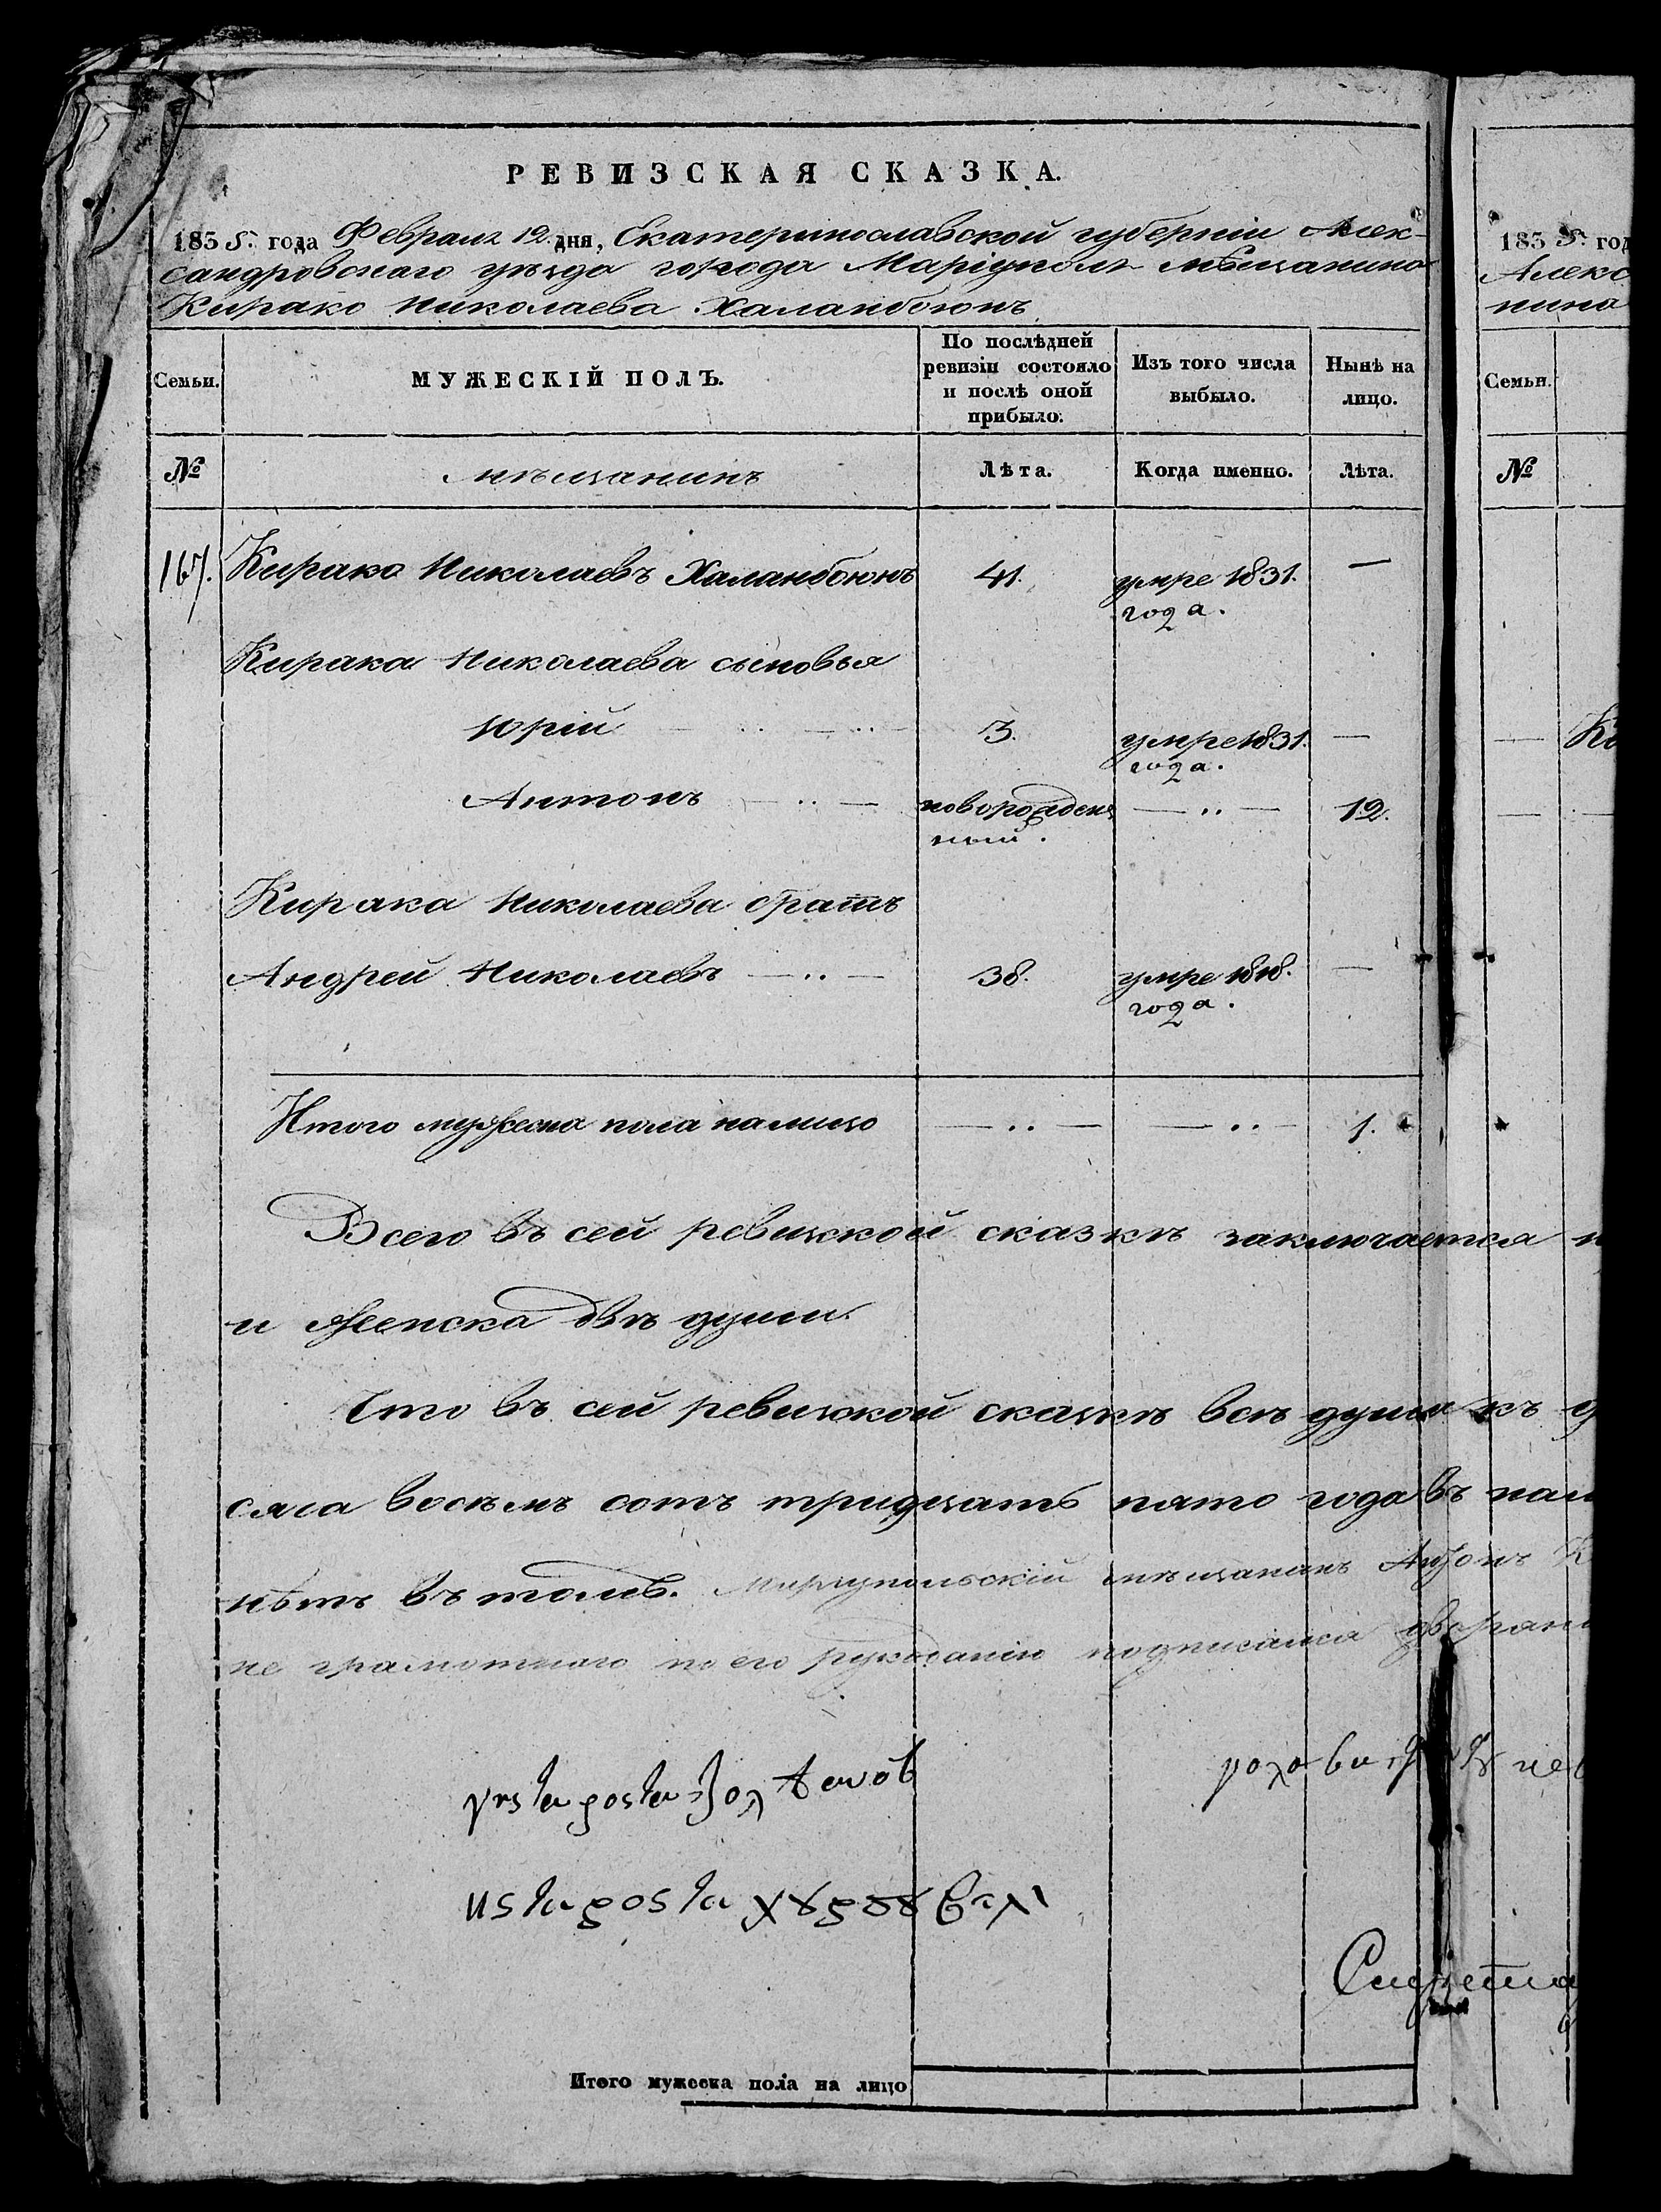 РЕВИЗСКАЯ СКАЗКА.
1835. года Февраля 12. дня, Екатеринославской губерніи Алек-
сандровскаго уѣзда города Маріуполя мѣщанина
Кирако Николаева Халанбоюнъ
Семьи.
МУЖЕСКІЙ ПОЛЪ.
По послѣдней ревизіи состояло и послѣ оной прибыло.
Изъ того числа выбыло.
Нынѣ на лицо.
№
мѣщанинъ
Лѣта.
Когда именно.
Лѣта.
167. Кирако Николаевъ Халанбоюнъ 41. умре 1831. —
года.
Кирака Николаева сыновья
Юрій 3. умре 1831. —
года.
Антонъ новорожден 12.
ный.
Кирака Николаева братъ
Андрей Николаевъ 38. умре 1818. —
года.
Итого мужеска пола налицо 1.
Всего въ сей ревизской сказкѣ заключается
и женска двѣ души.
Что въ сей ревизской сказкѣ всѣ души къ
сяча восѣмъ сотъ тридцать пято года въ
нѣтъ въ томъ. Маріупольскій мѣщанинъ Антонъ
не грамотного по его рукоданію подписался
Итого мужеска пола на лицо
1835. год
Алекс
нина
Семьи.
№